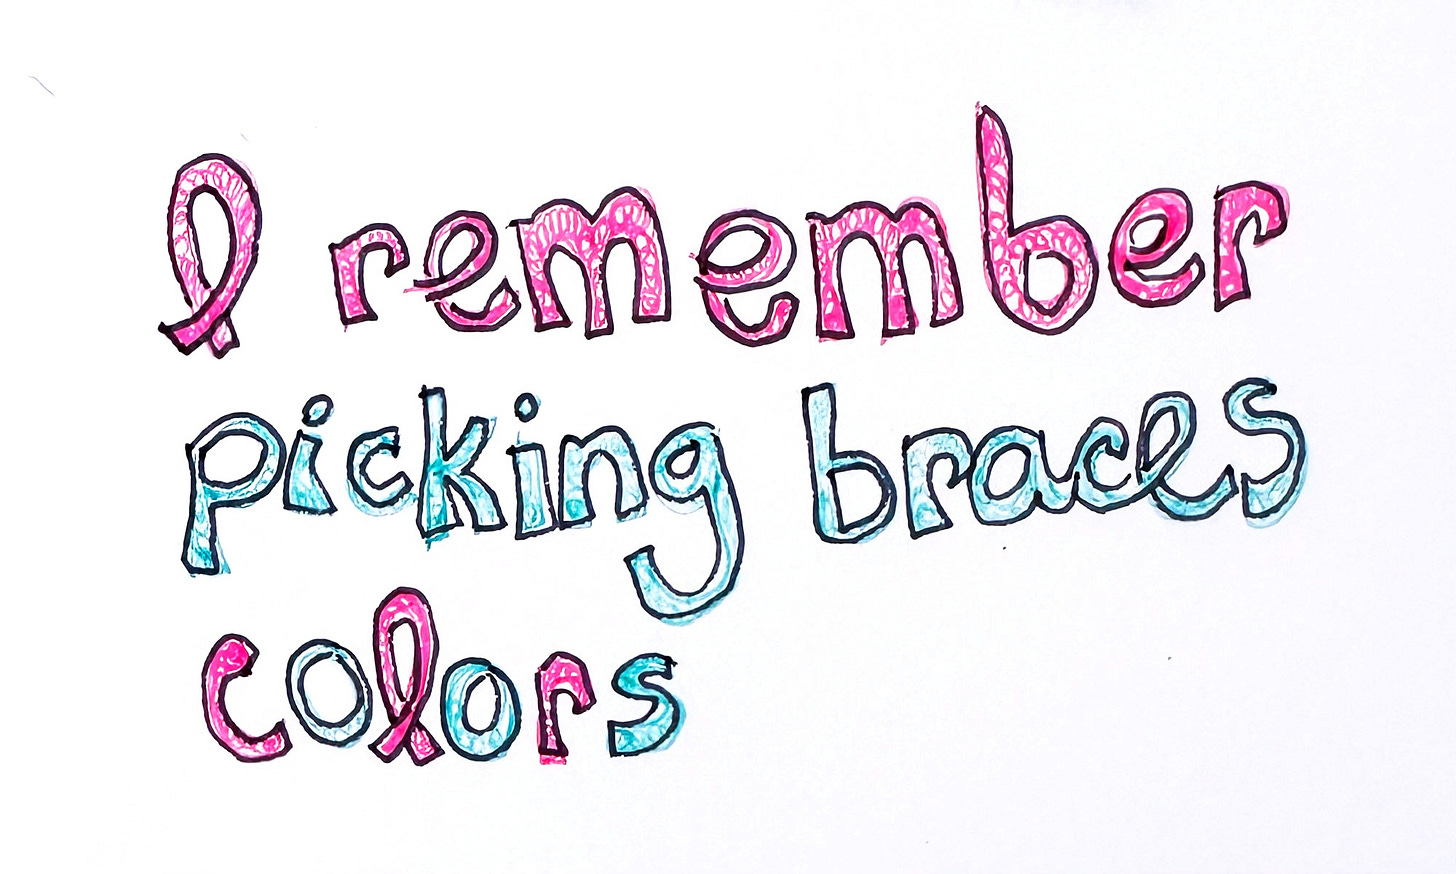 I remember
picking braces
colors